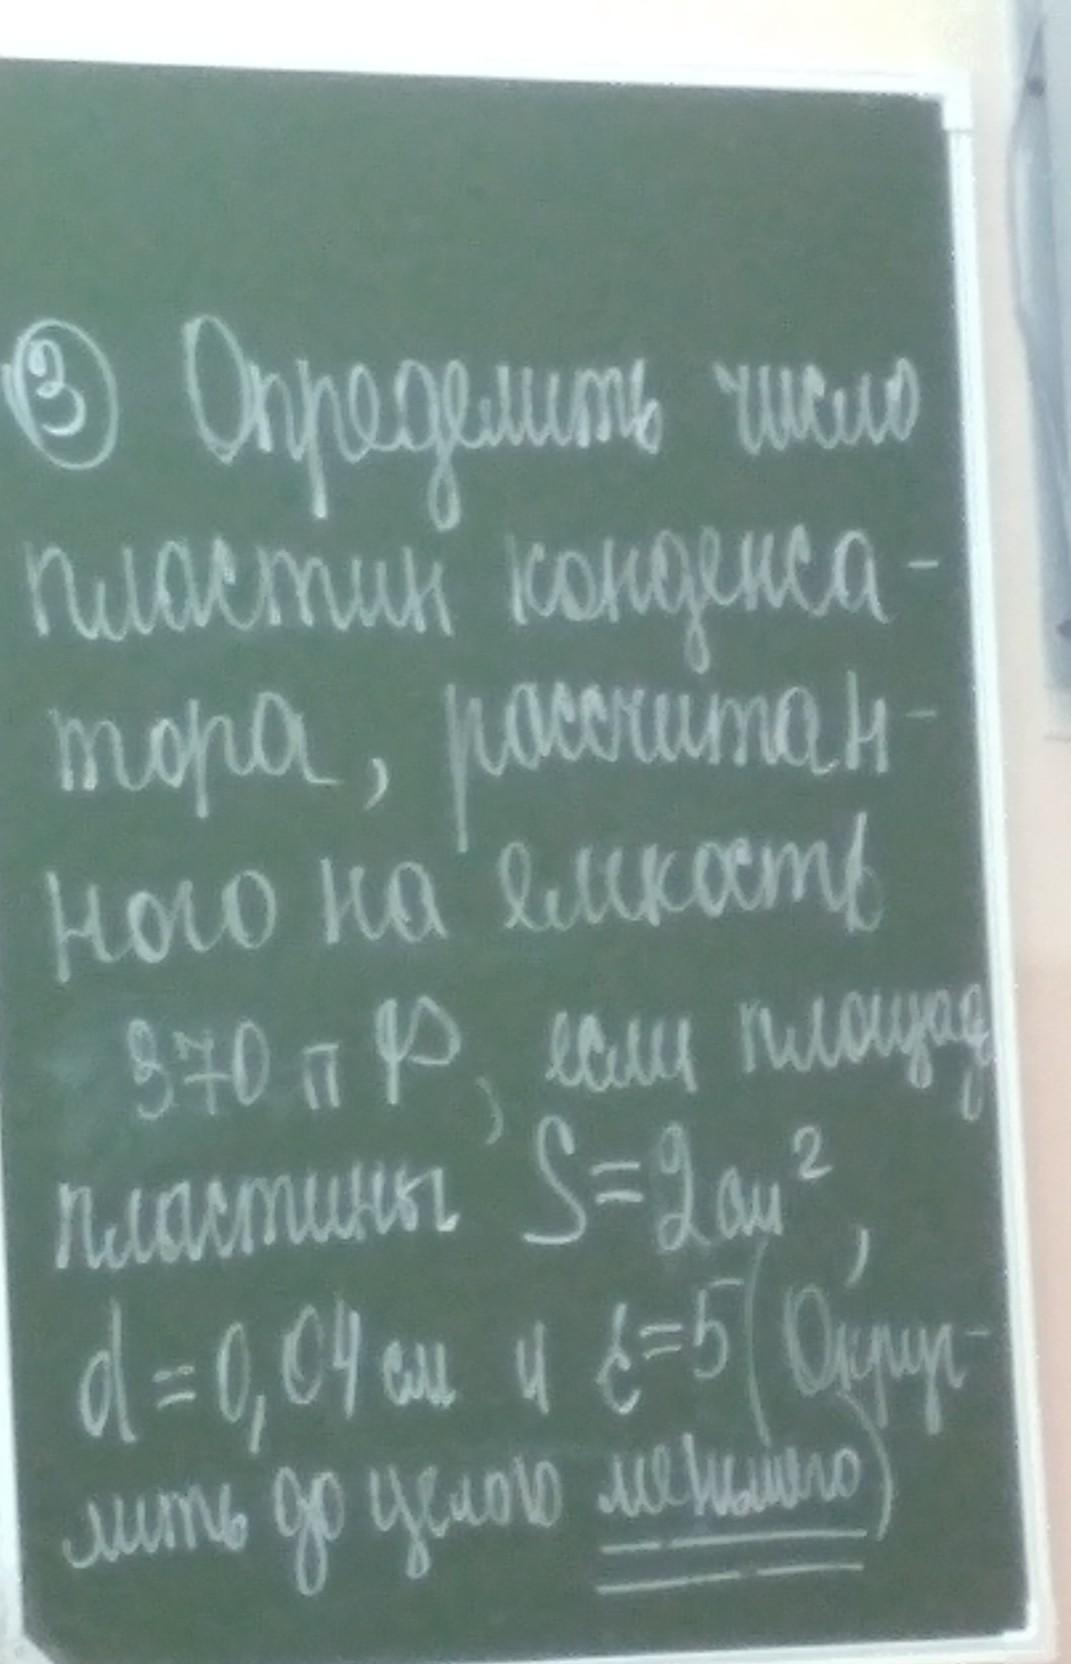 ③ Определить число
пластин конденса-
тора, рассчитан-
ного на емкость
370 пФ, если площадь
пластины S=2см²,
d=0,04см и ε=5(Округ-
лить до целого меньшего)